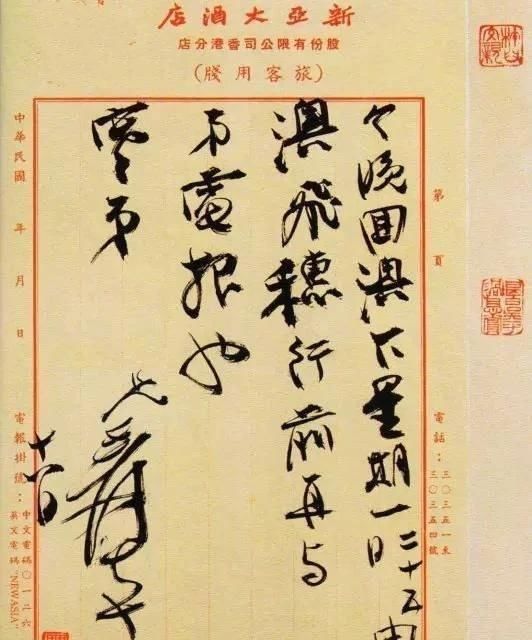 新亞大酒店
股份有限公司香港分店
(旅客用牋)
第 頁
電話：三〇三五一至三〇三五四號
今晚囬澳下星期一日二十五由
澳飛穗行前再与
弟電報也
弟
兄爰
中華民國 年 月 日
電報掛號：中文電碼〇一二六
英文電碼"NEWASIA"